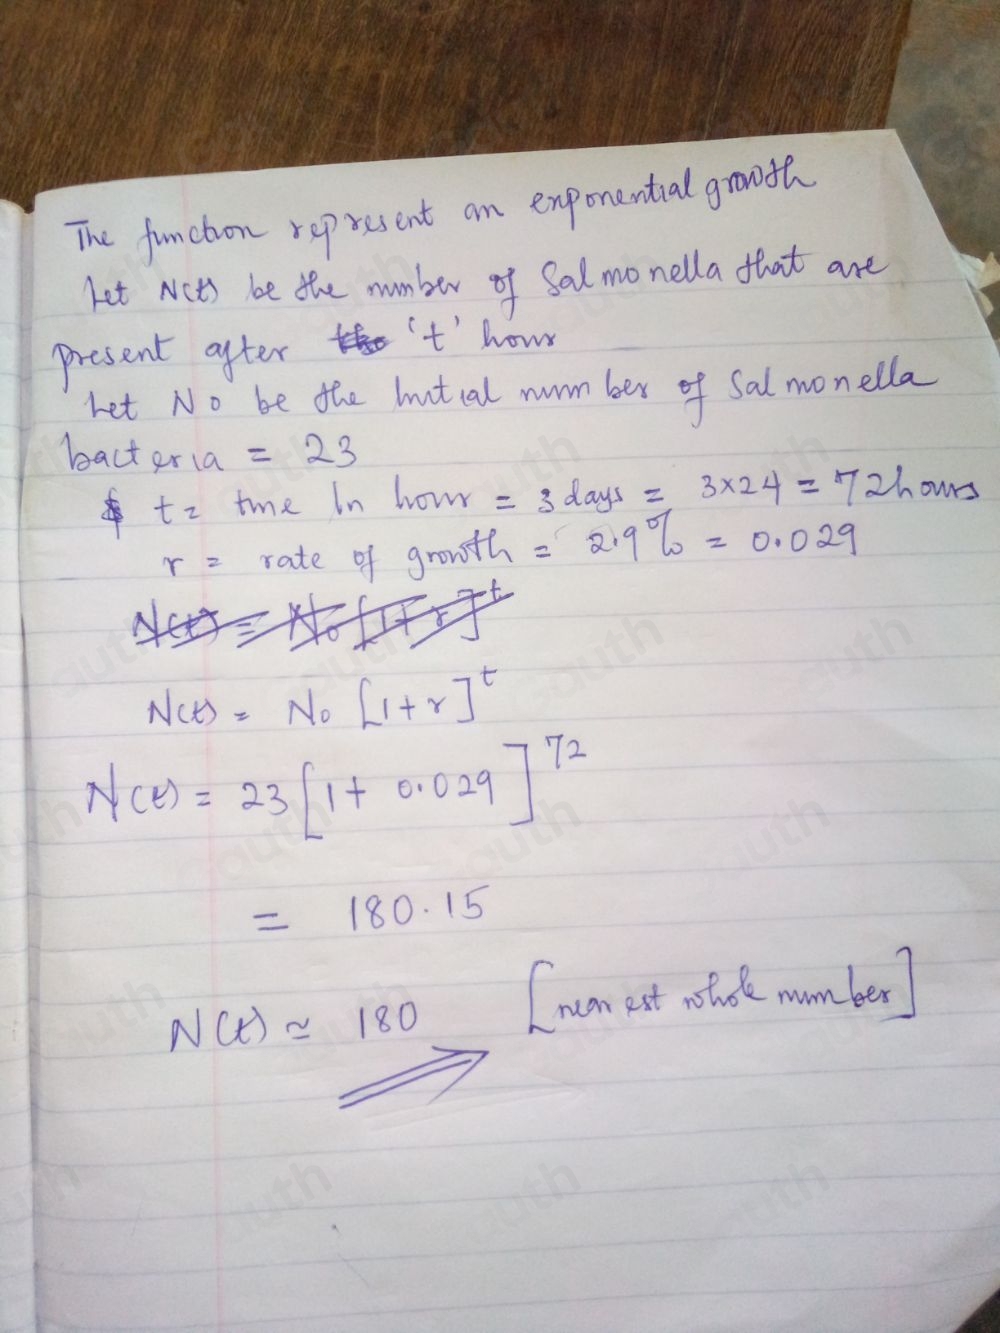 The function represent an exponential growth
Let N(t) be the number of Salmonella that are
present after 't' hour
Let No be the Initial number of Salmonella
bacteria = 23
t = time In hour = 3 days = 3×24 = 72 hours
r = rate of growth = 2.9% = 0.029
N(t) = No [1+r]^t
N(t) = No [1+r]^t
N(t) = 23 [1+ 0.029]^72
= 180.15
N(t) ≃ 180 [nearest whole number]